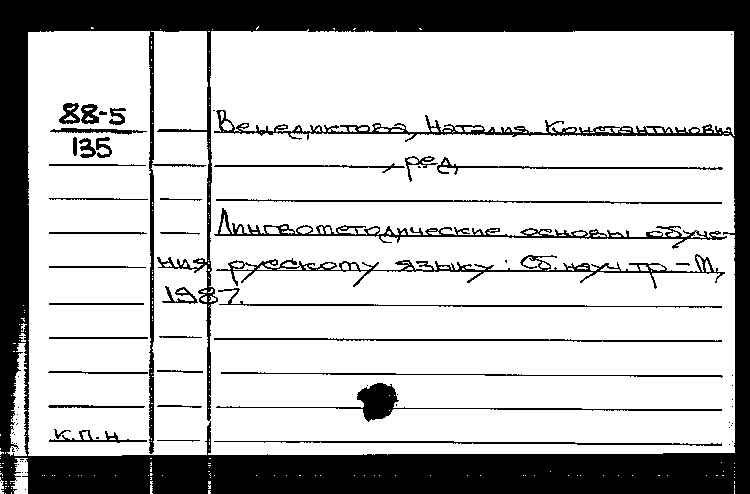 88-5
135
Венедиктова, Наталия Константиновна
, ред.
Лингвометодические основы обуче-
ния русскому языку: Сб. науч. тр. – М.,
1987.
к.п.н.